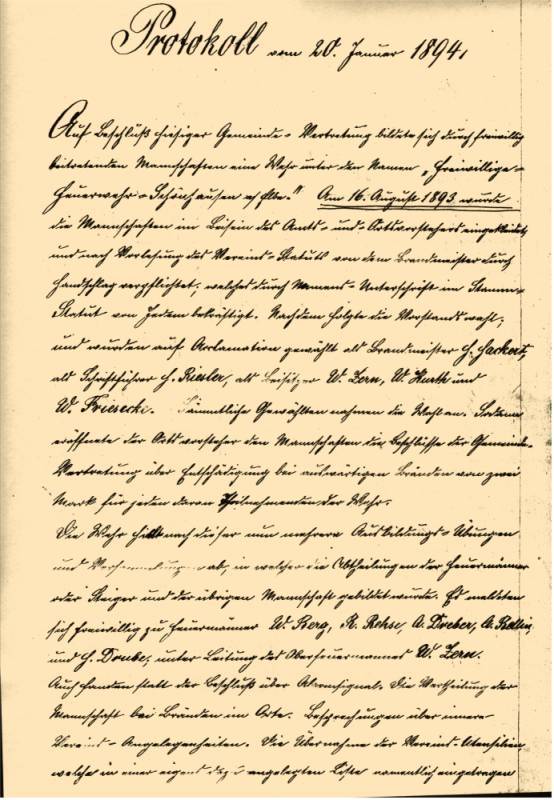 Protokoll vom 20. Januar 1894.
Auf Beschluß hiesiger Gemeinde-Vertretung bildete sich durch freiwillig
beitretenden Mannschaften eine Wehr unter den Namen „Freiwillige-
Feuerwehr-Schönhausen a/Elbe." Am 16. August 1893 wurde
die Mannschaften im Beisein des Amts- und Ortsvorstehers eingekleidet,
und nach Vorlesung des Vereins-Statuts von dem Brandmeister durch
Handschlag verpflichtet, welches durch Namens-Unterschrift im Stamm-
Statut von Jedem bekräftigt. Nachdem folgte die Vorstandswahl,
und wurden auf Acclamation gewählt als Brandmeister H. Hackert,
als Schriftführer H. Riesler, als Beisitzer W. Zern, W. Huth und
W. Friesecke. Sämmtliche Gewählten nahmen die Wahl an. Sodann
eröffnete der Ortsvorsteher den Mannschaften die Beschlüsse der Gemeinde-
Vertretung über Entschädigung bei auswärtigen Bränden von zwei
Mark für jeden daran Theilnehmenden der Wehr.
Die Wehr hielt nach dieser nun mehrere Ausbildungs-Übungen
und ab, in welcher die Abtheilungen der Feuermänner
oder Steiger und der übrigen Mannschaft gebildet wurde. Es meldeten
sich freiwillig zu Feuermänner W. Berg, R. Rehse, A. Dreber, A. Bellin,
und H. Draube, unter Leitung des Oberfeuermannes W. Zern.
Auch fanden statt der Beschluß über Alarmsignal. Die Vertheilung der
Mannschaft bei Bränden im Orte. Besprechungen über innere
Vereins-Angelegenheiten. Die Übernahme der Vereins-Utensilien
welche in einer eigens dazu angelegten Liste namentlich eingetragen